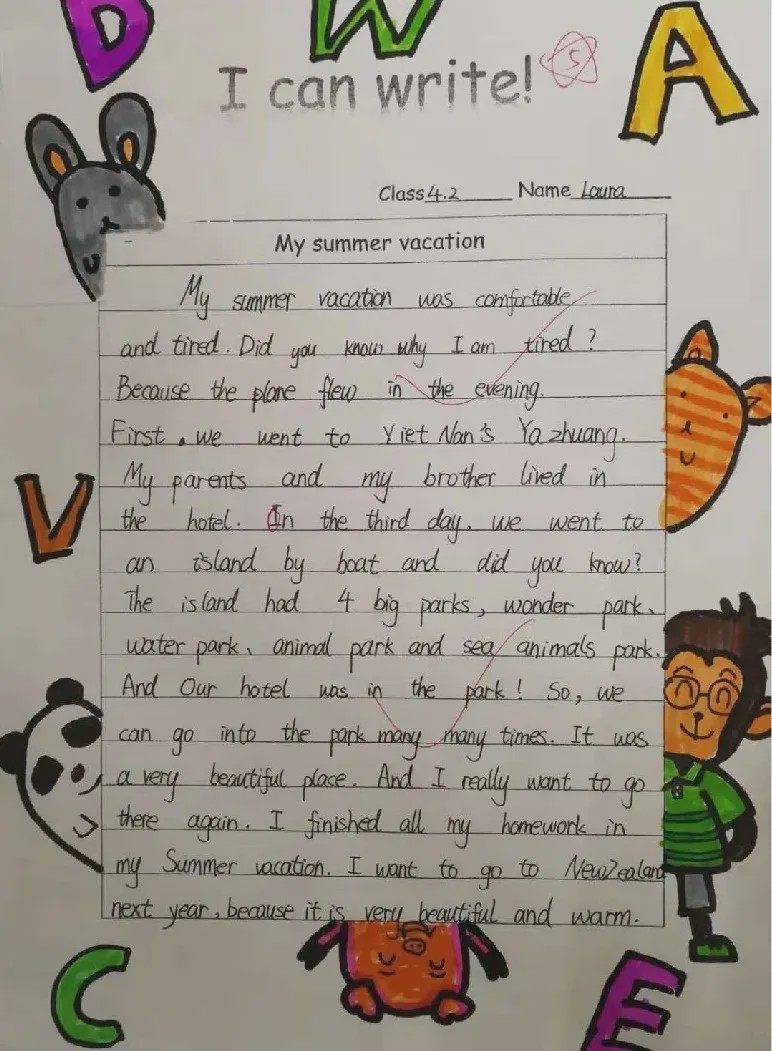 D W A
I can write! 5
Class 4.2 Name Laura
My summer vacation
My summer vacation was comfortable
and tired. Did you know why I am tired?
Because the plane flew in the evening.
First, we went to Yiet Nan's Ya zhuang.
My parents and my brother lived in
the hotel. In the third day, we went to
an island by boat and did you know?
The island had 4 big parks, wonder park、
water park、animal park and sea animals park.
And Our hotel was in the park! So, we
can go into the park many many times. It was
a very beautiful place. And I really want to go
there again. I finished all my homework in
my Summer vacation. I want to go to NewZealand
next year, because it is very beautiful and warm.
V
C E